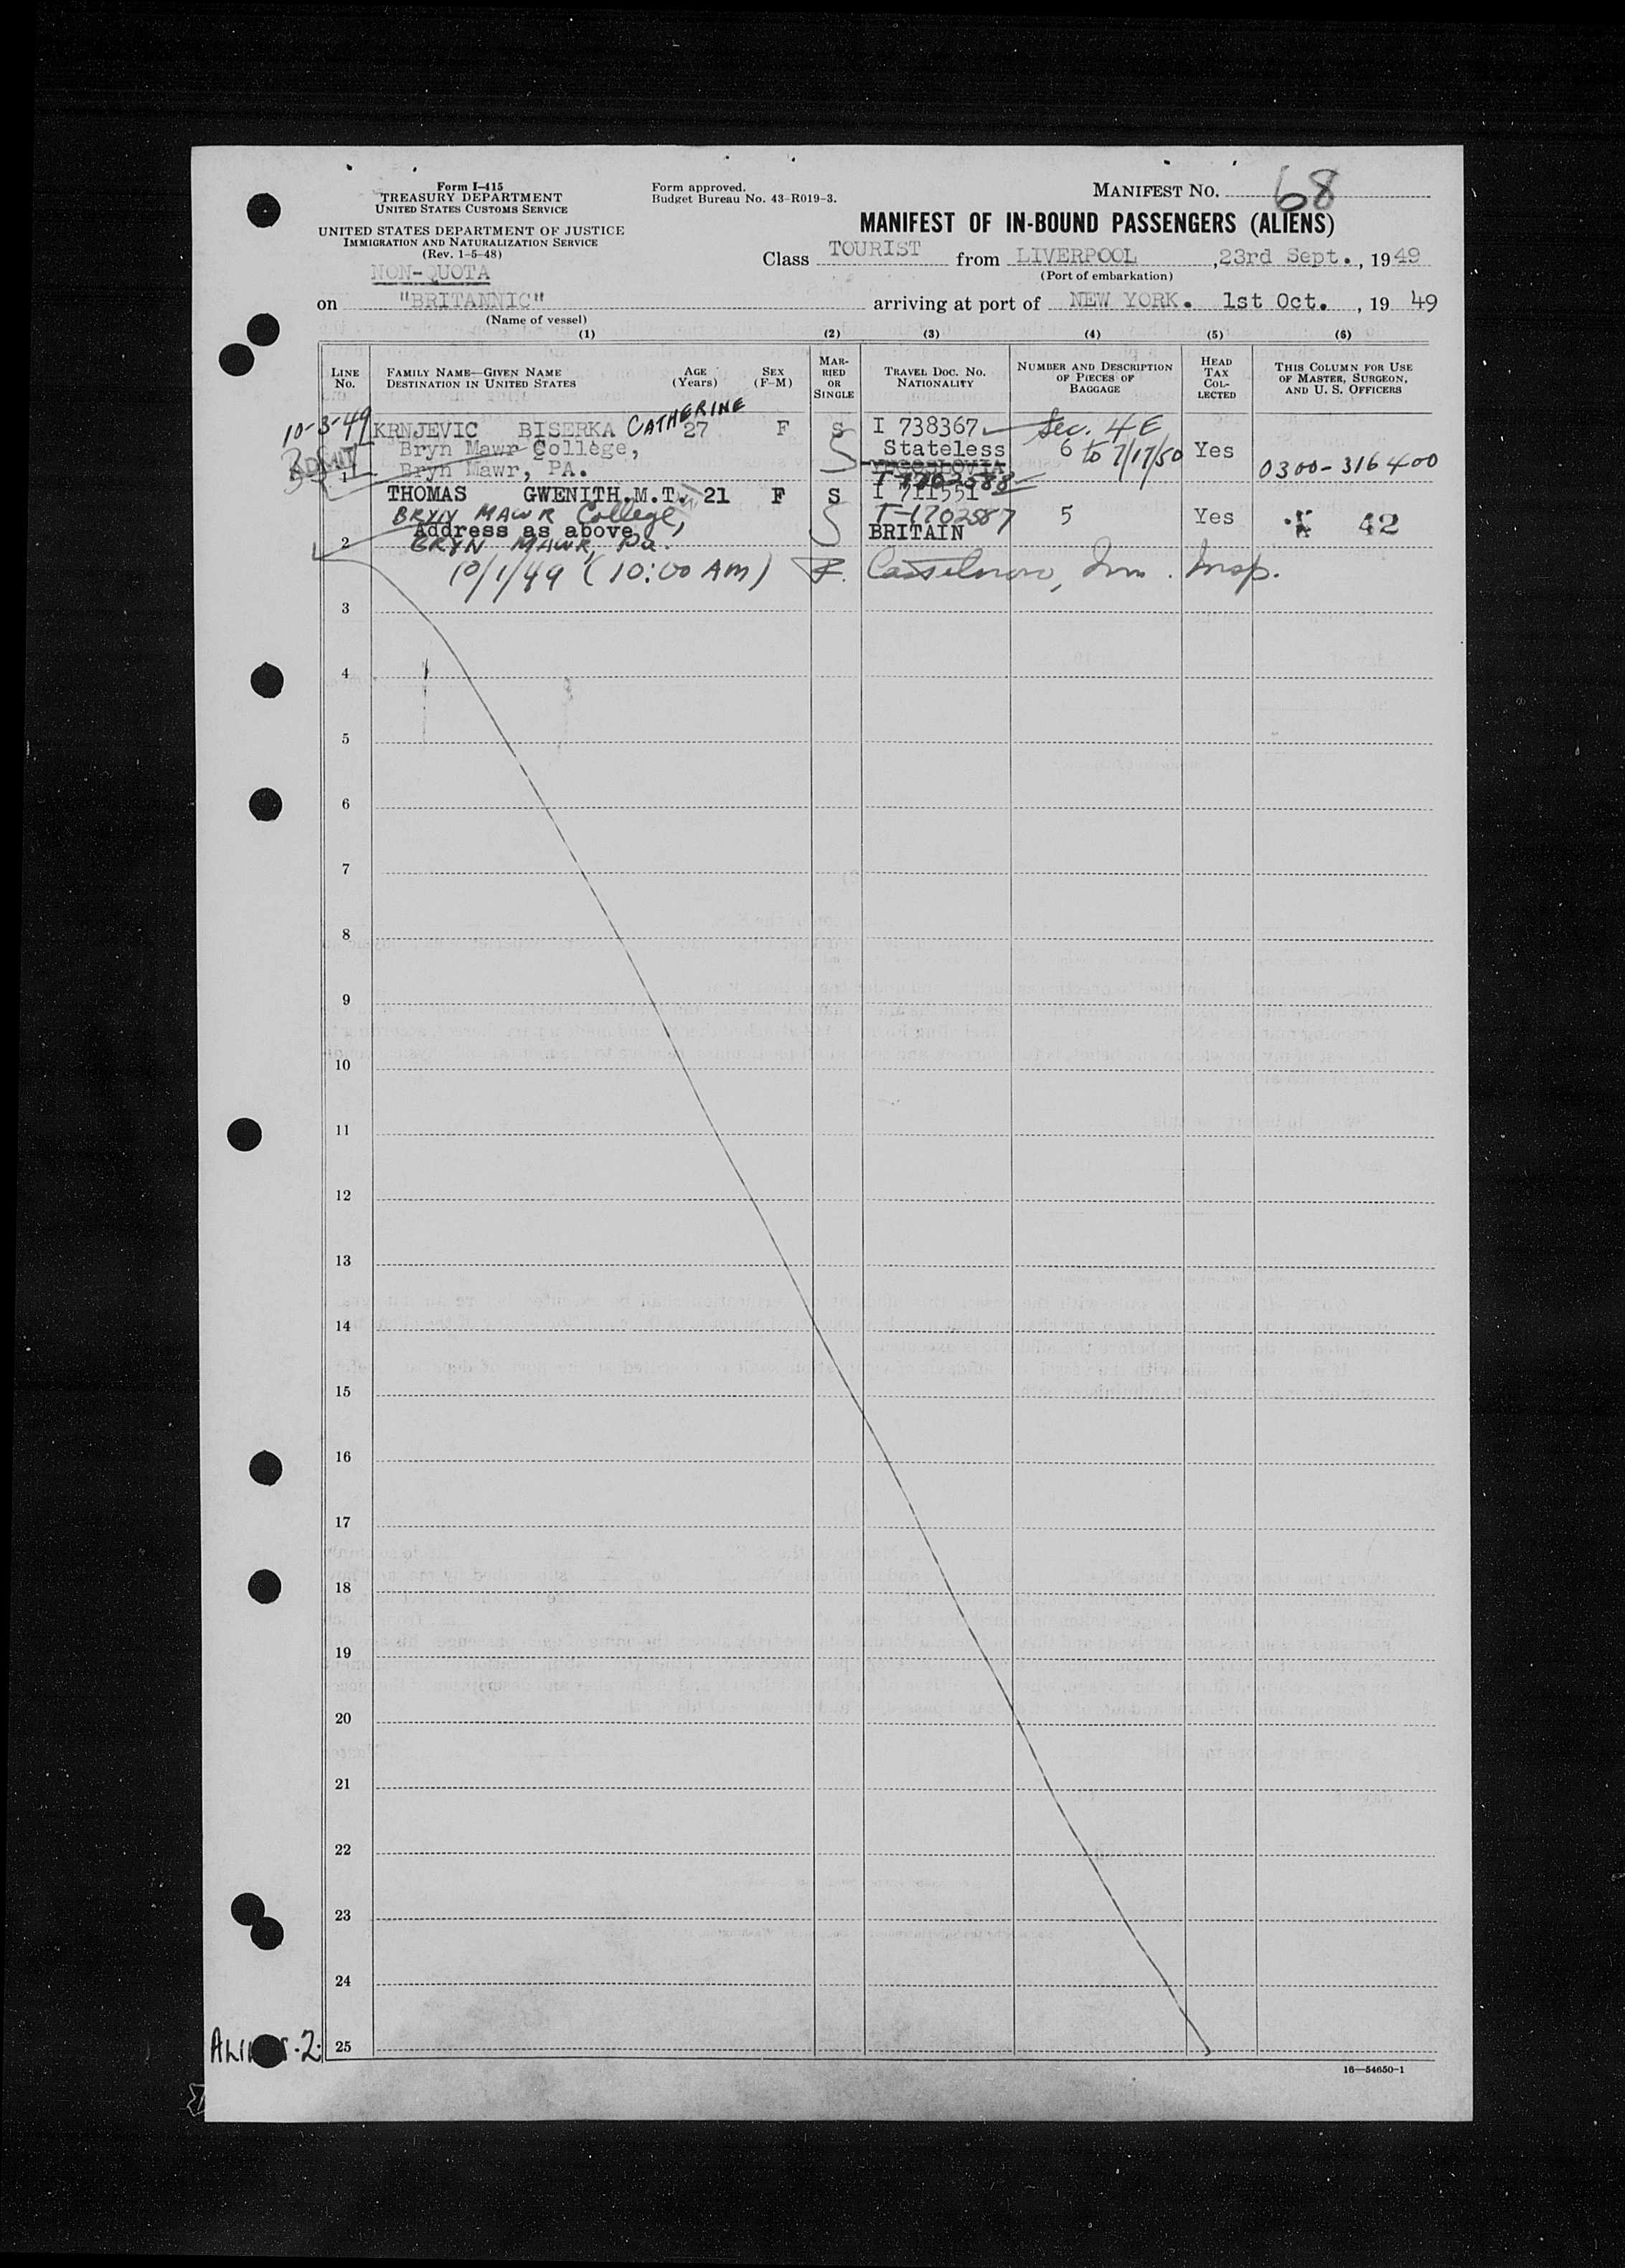 Form I-415
TREASURY DEPARTMENT
UNITED STATES CUSTOMS SERVICE
UNITED STATES DEPARTMENT OF JUSTICE
IMMIGRATION AND NATURALIZATION SERVICE
(Rev. 1-5-48)
Form approved.
Budget Bureau No. 43-R019-3.
MANIFEST NO. 68
MANIFEST OF IN-BOUND PASSENGERS (ALIENS)
Class TOURIST from LIVERPOOL, 23rd Sept., 1949
(Port of embarkation)
NON-QUOTA
on "BRITANNIC" arriving at port of NEW YORK. 1st Oct., 19 49
(Name of vessel)
(1) (2) (3) (4) (5) (6)
LINE No. FAMILY NAME—GIVEN NAME DESTINATION IN UNITED STATES AGE (Years) SEX (F-M) MARRIED OR SINGLE TRAVEL DOC. NO. NATIONALITY NUMBER AND DESCRIPTION OF PIECES OF BAGGAGE HEAD TAX COLLECTED THIS COLUMN FOR USE OF MASTER, SURGEON, AND U. S. OFFICERS
10-3-49 KRNJEVIC BISERKA CATHERINE 27 F S I 738367 Sec. 4E
ADMIT Bryn Mawr College, Stateless 6 to 7/17/50 Yes
1 Bryn Mawr, PA. YUGOSLOVIA 0300-316400
T-1702588
THOMAS GWENITH.M.T. 21 F S I 711551
BRYN MAWR College, T-1702587 5 Yes 42
2 Address as above BRITAIN
BRYN MAWR, Pa.
10/1/49 (10:00 AM) Imm. Insp.
3
4
5
6
7
8
9
10
11
12
13
14
15
16
17
18
19
20
21
22
23
24
25
16—54650-1